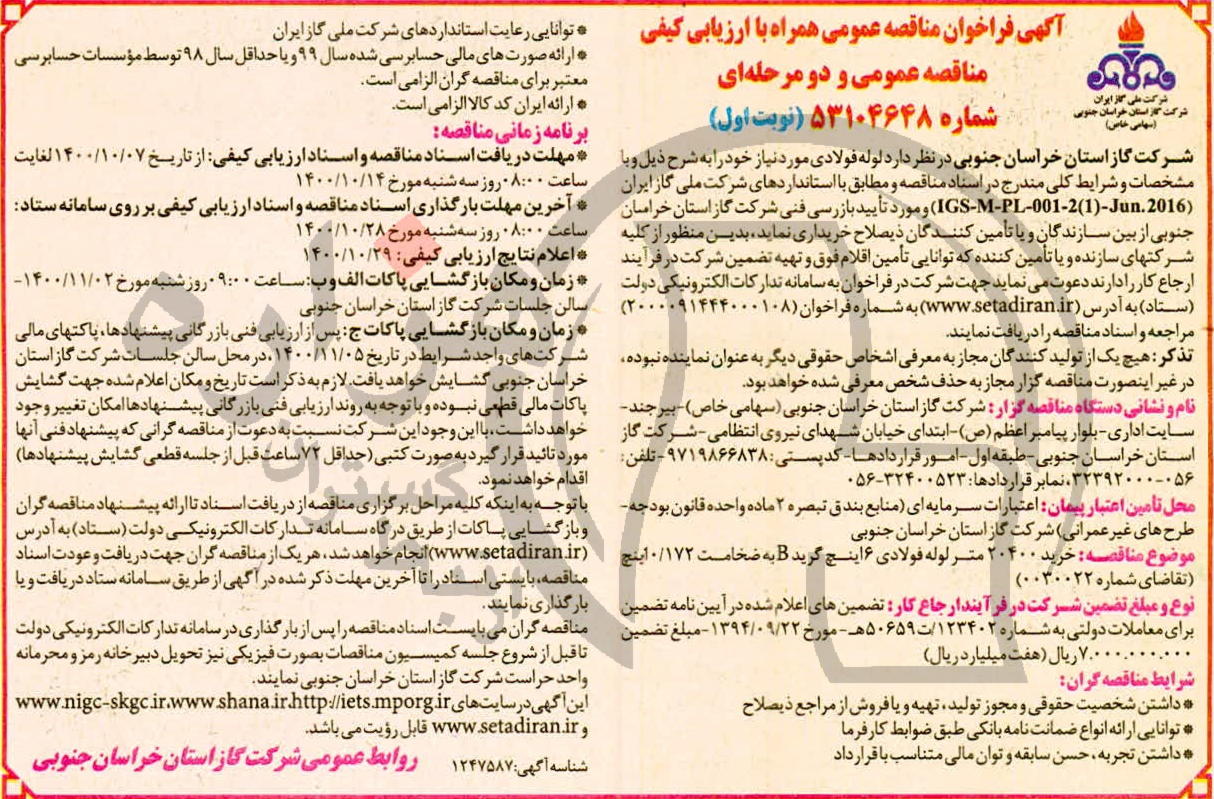 آگهی فراخوان مناقصه عمومی همراه با ارزیابی کیفی
مناقصه عمومی و دو مرحله‌ای
شماره ۵۳۱۰۴۶۴۸ (نوبت اول)
شرکت ملی گاز ایران
شرکت گاز استان خراسان جنوبی
(سهامی خاص)
شرکت گاز استان خراسان جنوبی در نظر دارد لوله فولادی مورد نیاز خود را به شرح ذیل و با
مشخصات و شرایط کلی مندرج در اسناد مناقصه و مطابق با استانداردهای شرکت ملی گاز ایران
(IGS-M-PL-001-2(1)-Jun.2016) و مورد تأیید بازرسی فنی شرکت گاز استان خراسان
جنوبی از بین سازندگان و یا تأمین کنندگان ذیصلاح خریداری نماید، بدین منظور از کلیه
شرکتهای سازنده و یا تأمین کننده که توانایی تأمین اقلام فوق و تهیه تضمین شرکت در فرآیند
ارجاع کار را دارند دعوت می نماید جهت شرکت در فراخوان به سامانه تدارکات الکترونیکی دولت
(ستاد) به آدرس (www.setadiran.ir) به شماره فراخوان (۲۰۰۰۰۹۱۴۴۴۰۰۰۱۰۸)
مراجعه و اسناد مناقصه را دریافت نمایند.
تذکر: هیچ یک از تولید کنندگان مجاز به معرفی اشخاص حقوقی دیگر به عنوان نماینده نبوده،
در غیر اینصورت مناقصه گزار مجاز به حذف شخص معرفی شده خواهد بود.
نام و نشانی دستگاه مناقصه گزار: شرکت گاز استان خراسان جنوبی (سهامی خاص)-بیرجند-
سایت اداری-بلوار پیامبر اعظم (ص)-ابتدای خیابان شهدای نیروی انتظامی-شرکت گاز
استان خراسان جنوبی-طبقه اول-امور قراردادها-کدپستی: ۹۷۱۹۸۶۶۸۳۸-تلفن:
۰۵۶-۳۲۳۹۲۰۰۰، نمابر قراردادها: ۳۲۴۰۰۵۲۳-۰۵۶
محل تأمین اعتبار پیمان: اعتبارات سرمایه ای (منابع بند ق تبصره ۲ ماده واحده قانون بودجه-
طرح های غیر عمرانی) شرکت گاز استان خراسان جنوبی
موضوع مناقصه: خرید ۲۰۴۰۰ متر لوله فولادی ۶ اینچ گرید B به ضخامت ۰/۱۷۲ اینچ
(تقاضای شماره ۰۰۳۰۰۲۲)
نوع و مبلغ تضمین شرکت در فرآیند ارجاع کار: تضمین های اعلام شده در آیین نامه تضمین
برای معاملات دولتی به شماره ۱۲۳۴۰۲/ت۵۰۶۵۹هـ-مورخ ۱۳۹۴/۰۹/۲۲-مبلغ تضمین
۷.۰۰۰.۰۰۰.۰۰۰ ریال (هفت میلیارد ریال)
شرایط مناقصه گران:
* داشتن شخصیت حقوقی و مجوز تولید، تهیه و یا فروش از مراجع ذیصلاح
* توانایی ارائه انواع ضمانت نامه بانکی طبق ضوابط کارفرما
* داشتن تجربه، حسن سابقه و توان مالی متناسب با قرارداد
* توانایی رعایت استانداردهای شرکت ملی گاز ایران
* ارائه صورت های مالی حسابرسی شده سال ۹۹ و یا حداقل سال ۹۸ توسط مؤسسات حسابرسی
معتبر برای مناقصه گران الزامی است.
* ارائه ایران کد کالا الزامی است.
برنامه زمانی مناقصه:
* مهلت دریافت اسناد مناقصه و اسناد ارزیابی کیفی: از تاریخ ۱۴۰۰/۱۰/۰۷ لغایت
ساعت ۰۸:۰۰ روز سه شنبه مورخ ۱۴۰۰/۱۰/۱۴
* آخرین مهلت بارگذاری اسناد مناقصه و اسناد ارزیابی کیفی بر روی سامانه ستاد:
ساعت ۰۸:۰۰ روز سه‌شنبه مورخ ۱۴۰۰/۱۰/۲۸
* اعلام نتایج ارزیابی کیفی: ۱۴۰۰/۱۰/۲۹
* زمان و مکان بازگشایی پاکات الف و ب: ساعت ۰۹:۰۰ روز شنبه مورخ ۱۴۰۰/۱۱/۰۲-
سالن جلسات شرکت گاز استان خراسان جنوبی
* زمان و مکان بازگشایی پاکات ج: پس از ارزیابی فنی بازرگانی پیشنهادها، پاکتهای مالی
شرکت‌های واجد شرایط در تاریخ ۱۴۰۰/۱۱/۰۵، در محل سالن جلسات شرکت گاز استان
خراسان جنوبی گشایش خواهد یافت. لازم به ذکر است تاریخ و مکان اعلام شده جهت گشایش
پاکات مالی قطعی نبوده و با توجه به روند ارزیابی فنی بازرگانی پیشنهادها امکان تغییر وجود
خواهد داشت، با این وجود این شرکت نسبت به دعوت از مناقصه گرانی که پیشنهاد فنی آنها
مورد تائید قرار گیرد به صورت کتبی (حداقل ۷۲ ساعت قبل از جلسه قطعی گشایش پیشنهادها)
اقدام خواهد نمود.
با توجه به اینکه کلیه مراحل برگزاری مناقصه از دریافت اسناد تا ارائه پیشنهاد مناقصه گران
و بازگشایی پاکات از طریق درگاه سامانه تدارکات الکترونیکی دولت (ستاد) به آدرس
(www.setadiran.ir) انجام خواهد شد، هر یک از مناقصه گران جهت دریافت و عودت اسناد
مناقصه، بایستی اسناد را تا آخرین مهلت ذکر شده در آگهی از طریق سامانه ستاد دریافت و یا
بارگذاری نمایند.
مناقصه گران می بایست اسناد مناقصه را پس از بارگذاری در سامانه تدارکات الکترونیکی دولت
تا قبل از شروع جلسه کمیسیون مناقصات بصورت فیزیکی نیز تحویل دبیرخانه رمز و محرمانه
واحد حراست شرکت گاز استان خراسان جنوبی نمایند.
این آگهی در سایت‌های www.nigc-skgc.ir،www.shana.ir،http://iets.mporg.ir
و www.setadiran.ir قابل رؤیت می باشد.
شناسه آگهی: ۱۲۴۷۵۸۷
روابط عمومی شرکت گاز استان خراسان جنوبی